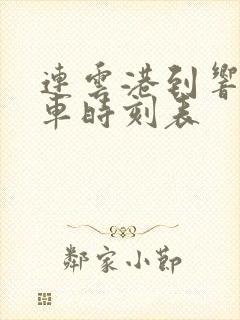 連雲港到響
車時刻表
鄰家小節